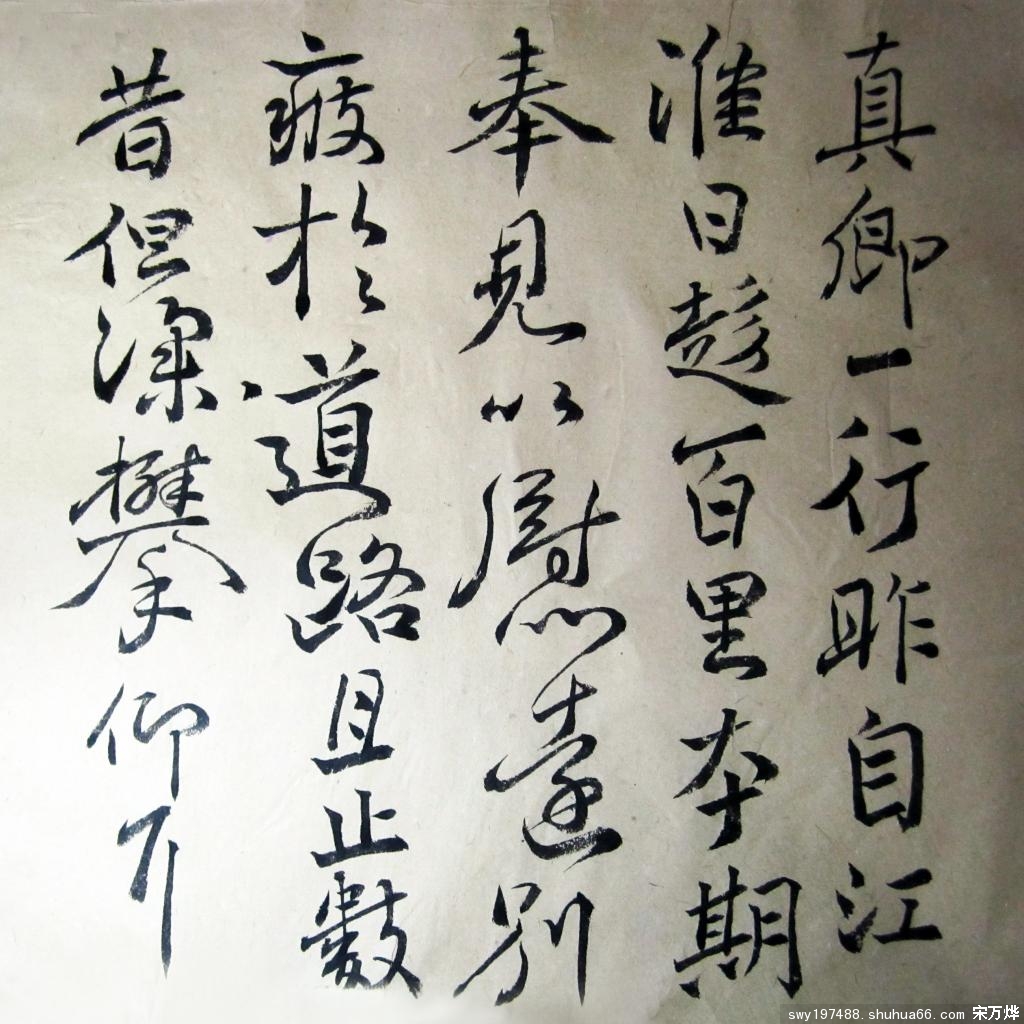 真卿一行昨自江
淮日趍百里本期
奉見以慰遠別
疲於道路且止數
昔但深攀仰
swy197488.shuhua66.com 宋万烨